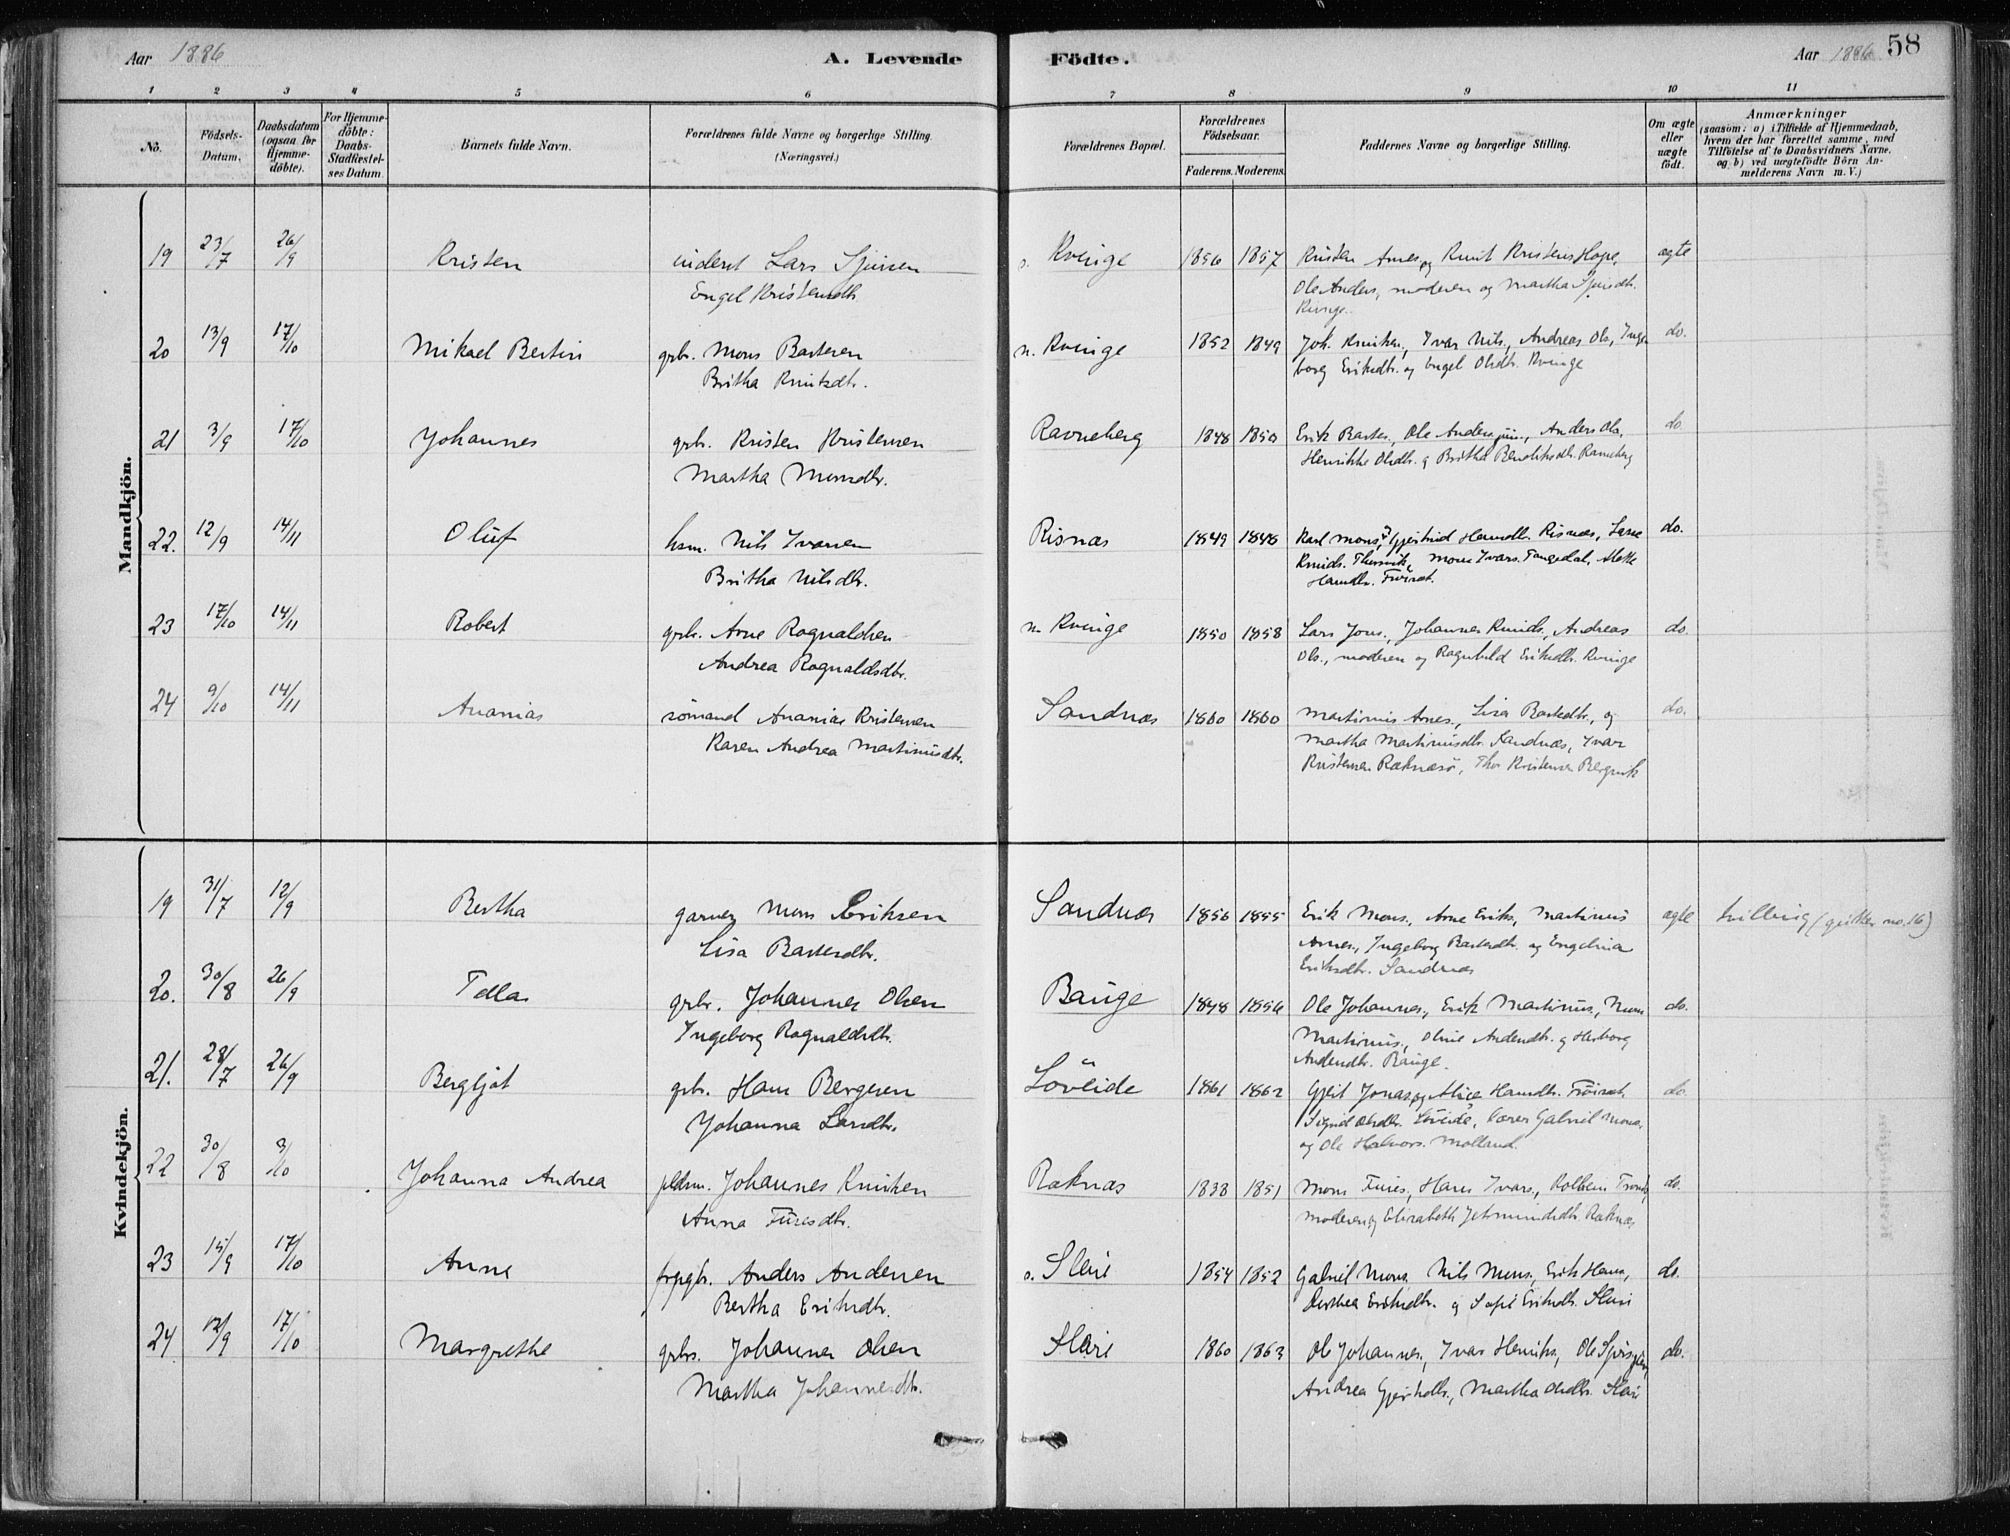 Aar 1886
A. Levende
Födte.
Aar 1886
58
1 2 3 4 5 6 7 8 9 10 11
No.
Födsels-Datum.
Daabsdatum (ogsaa for Hjemme-döbte).
For Hjemme-döbte: Daabs-Stadfæstel-ses Datum
Barnets fulde Navn.
Forældrenes fulde Navne og borgerlige Stilling. (Næringsvei.)
Forældrenes Bopæl.
Forældrenes Fødselsaar.
Faderens. Moderens.
Faddernes Navne og borgerlige Stilling.
Om ægte eller uægte födt.
Anmærkninger
(saasom: a) i Tilfælde af Hjemmedaab,
hvem der har forrettet samme, med
Tilföielse af to Daabsvidners Navne.
og b) ved uægtefödte Börn An-
melderens Navn m.V.)
Mandkjön.
19 23/7 26/9 Kristen inderst Lars Sjursen s. Kvinge 1856 1857 Kristen Arnes, og Knut Kristens Hope, ægte
Engel Kristensdtr. Ole Anders, moderen og Martha Sjursdtr.
Kvinge.
20 13/9 17/10 Mikael Bertin grbr. Mons Bastesen n. Kvinge 1852 1849 Joh. Knutsen, Ivar Nils, Andreas Ols, Inge- do.
Britha Knutsdtr. borg Eriksdtr. og Engel Olsdtr. Kvinge
21 3/9 17/10 Johannes grbr. Kristen Kristensen Ravneberg 1848 1850 Erik Bastes, Ole Anders, Anders Ols, do.
Martha Monsdtr. Henrikke Olsdtr. og Britha Bendiksdtr. Ravneberg
22. 12/9 14/11 Oluf hsm. Nils Ivarsen Risnæs 1849 1848 Karl Mons, Gjertrud Hansdtr. Risnæs, Lasse do.
Britha Nilsdtr. Knuds. Mons Ivars. Tangedal, Mette
Hansdtr.
23 17/10 14/11 Robert grbr. Arne Rognaldsen n. Kvinge 1850 1858 Lars Jons., Johannes Knuds., Andreas do.
Andrea Rognaldsdtr. Ols., moderen og Ragnhild Eriksdtr. Kvinge
24 9/10 14/11 Ananias sömand Ananias Kristensen Sandnæs 1860 1860 Martinus Arnes., Lisa Bastesdtr., og do.
Karen Andrea Martinusdtr. Martha Martinusdtr. Sandnæs, Ivar
Kristensen Ræknæsö, Thor Kristensen Bergsvik
Kvindekjön.
19 31/7 12/9 Bertha garver Mons Eriksen Sandnæs 1856 1855 Erik Mons., Arne Eriks, Martinus ægte tvilling (gutten no. 16)
Lisa Bastesdtr. Arnes., Ingeborg Bastesdtr. og Engelina
Eriksdtr. Sandnæs
20. 30/8 26/9 Tella grbr. Johannes Olsen Bauge 1848 1856 Ole Johannes., Erik Martinus., Mons do.
Ingeborg Rognaldsdtr. Martinus., Oline Andersdtr. og Herborg
Andersdtr. Bauge.
21. 28/7 26/9 Bergljot grbr. Hans Bergesen Löveide 1861 1862 Gjert Jonas, og Alice Hansdtr. do.
Johanna Larsdtr. Sigrid Olsdtr. Löveide, lærer Gabriel Mons.
og Ole Halvors. Molland.
22 30/8 3/10 Johanna Andrea Johannes Knutsen Ræknæs 1838 1851 Mons Fures, Hans Ivars, Kolbein Tronds, do.
Anna Furesdtr. moderen og Elisabeth Jetmundsdtr. Ræknæs
23 15/9 17/10 Anne Anders Andersen s. Sleire 1854 1852 Gabriel Mons. Nils Mons., Erik Hans., do.
Bertha Eriksdtr. Dorthea Eriksdtr. og Sofie Eriksdtr. Sleire
24 12/9 17/10 Margrethe grbr. Johannes Olsen Sleire 1860 1863 Ole Johannes, Ivar Henriks, Ole do.
Martha Johannesdtr. Andrea Gjertsdtr., Martha Olsdtr. Sleire